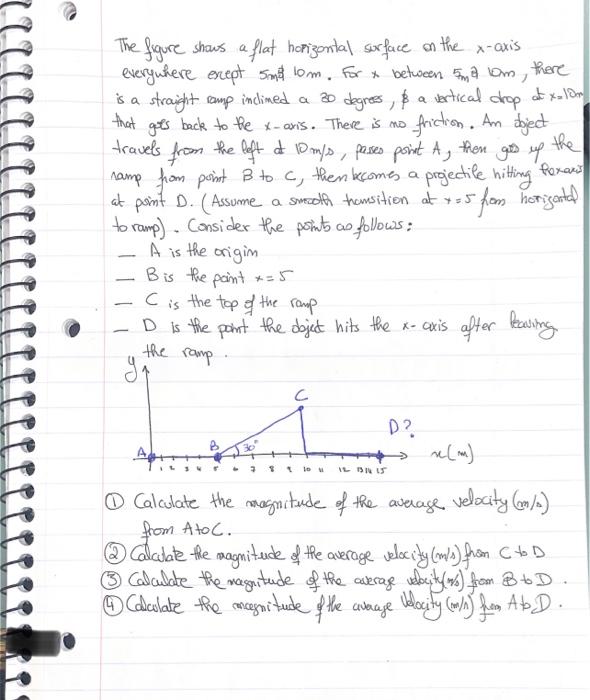 The figure shows a flat horizontal surface on the x-axis
everywhere except 5m & 10m. For x between 5m & 10m, there
is a straight ramp inclined a 30 degrees, & a vertical drop at x=10m
that goes back to the x-axis. There is no friction. An object
travels from the left at 10 m/s, passes point A, then goes up the
ramp from point B to C, then becomes a projectile hitting the x-axis
at point D. (Assume a smooth transition at x=5 from horizontal
to ramp). Consider the points as follows:
— A is the origin
— B is the point x=5
— C is the top of the ramp
— D is the point the object hits the x-axis after leaving
the ramp.
y
C
D?
A B 30° x(m)
1 2 3 4 5 6 7 8 9 10 11 12 13 14 15
① Calculate the magnitude of the average velocity (m/s)
from A to C.
② Calculate the magnitude of the average velocity (m/s) from C to D
③ Calculate the magnitude of the average velocity (m/s) from B to D.
④ Calculate the magnitude of the average velocity (m/s) from A to D.